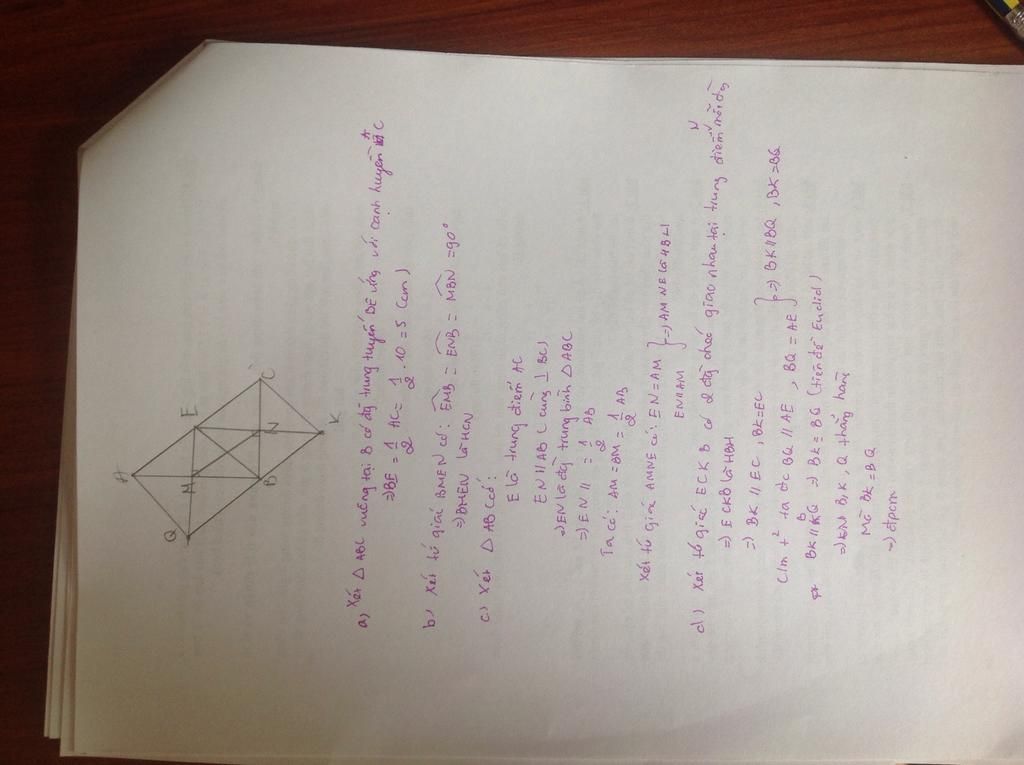 A
Q
M
E
B
N
C
K
a) Xét △ ABC vuông tại B có đg trung tuyến BE ứng với cạnh huyền AC
=> BE = 1/2 AC = 1/2 . 10 = 5 (cm)
b) Xét tứ giác BMEN có: EMB = ENB = MBN = 90°
=> BMEN là HCN
c) Xét △ ABC có:
E là trung điểm AC
EN // AB ( cùng ⊥ BC)
=> EN là đg trung bình △ ABC
=> EN // = 1/2 AB
Ta có: AM = BM = 1/2 AB
Xét tứ giác AMNE có: EN = AM
EN // AM } => AMNE là HBH
d) Xét tứ giác ECKB có 2 đg chéo giao nhau tại trung điểm N mỗi đg
=> ECKB là HBH
=> BK // EC , BK = EC
C/m t² ta đc BQ // AE , BQ = AE } => BK // BQ , BK = BQ
BK // BQ => BK ≡ BQ (tiên đề Euclid)
=> B, K, Q thẳng hàng
Mà BK = BQ
=> đpcm